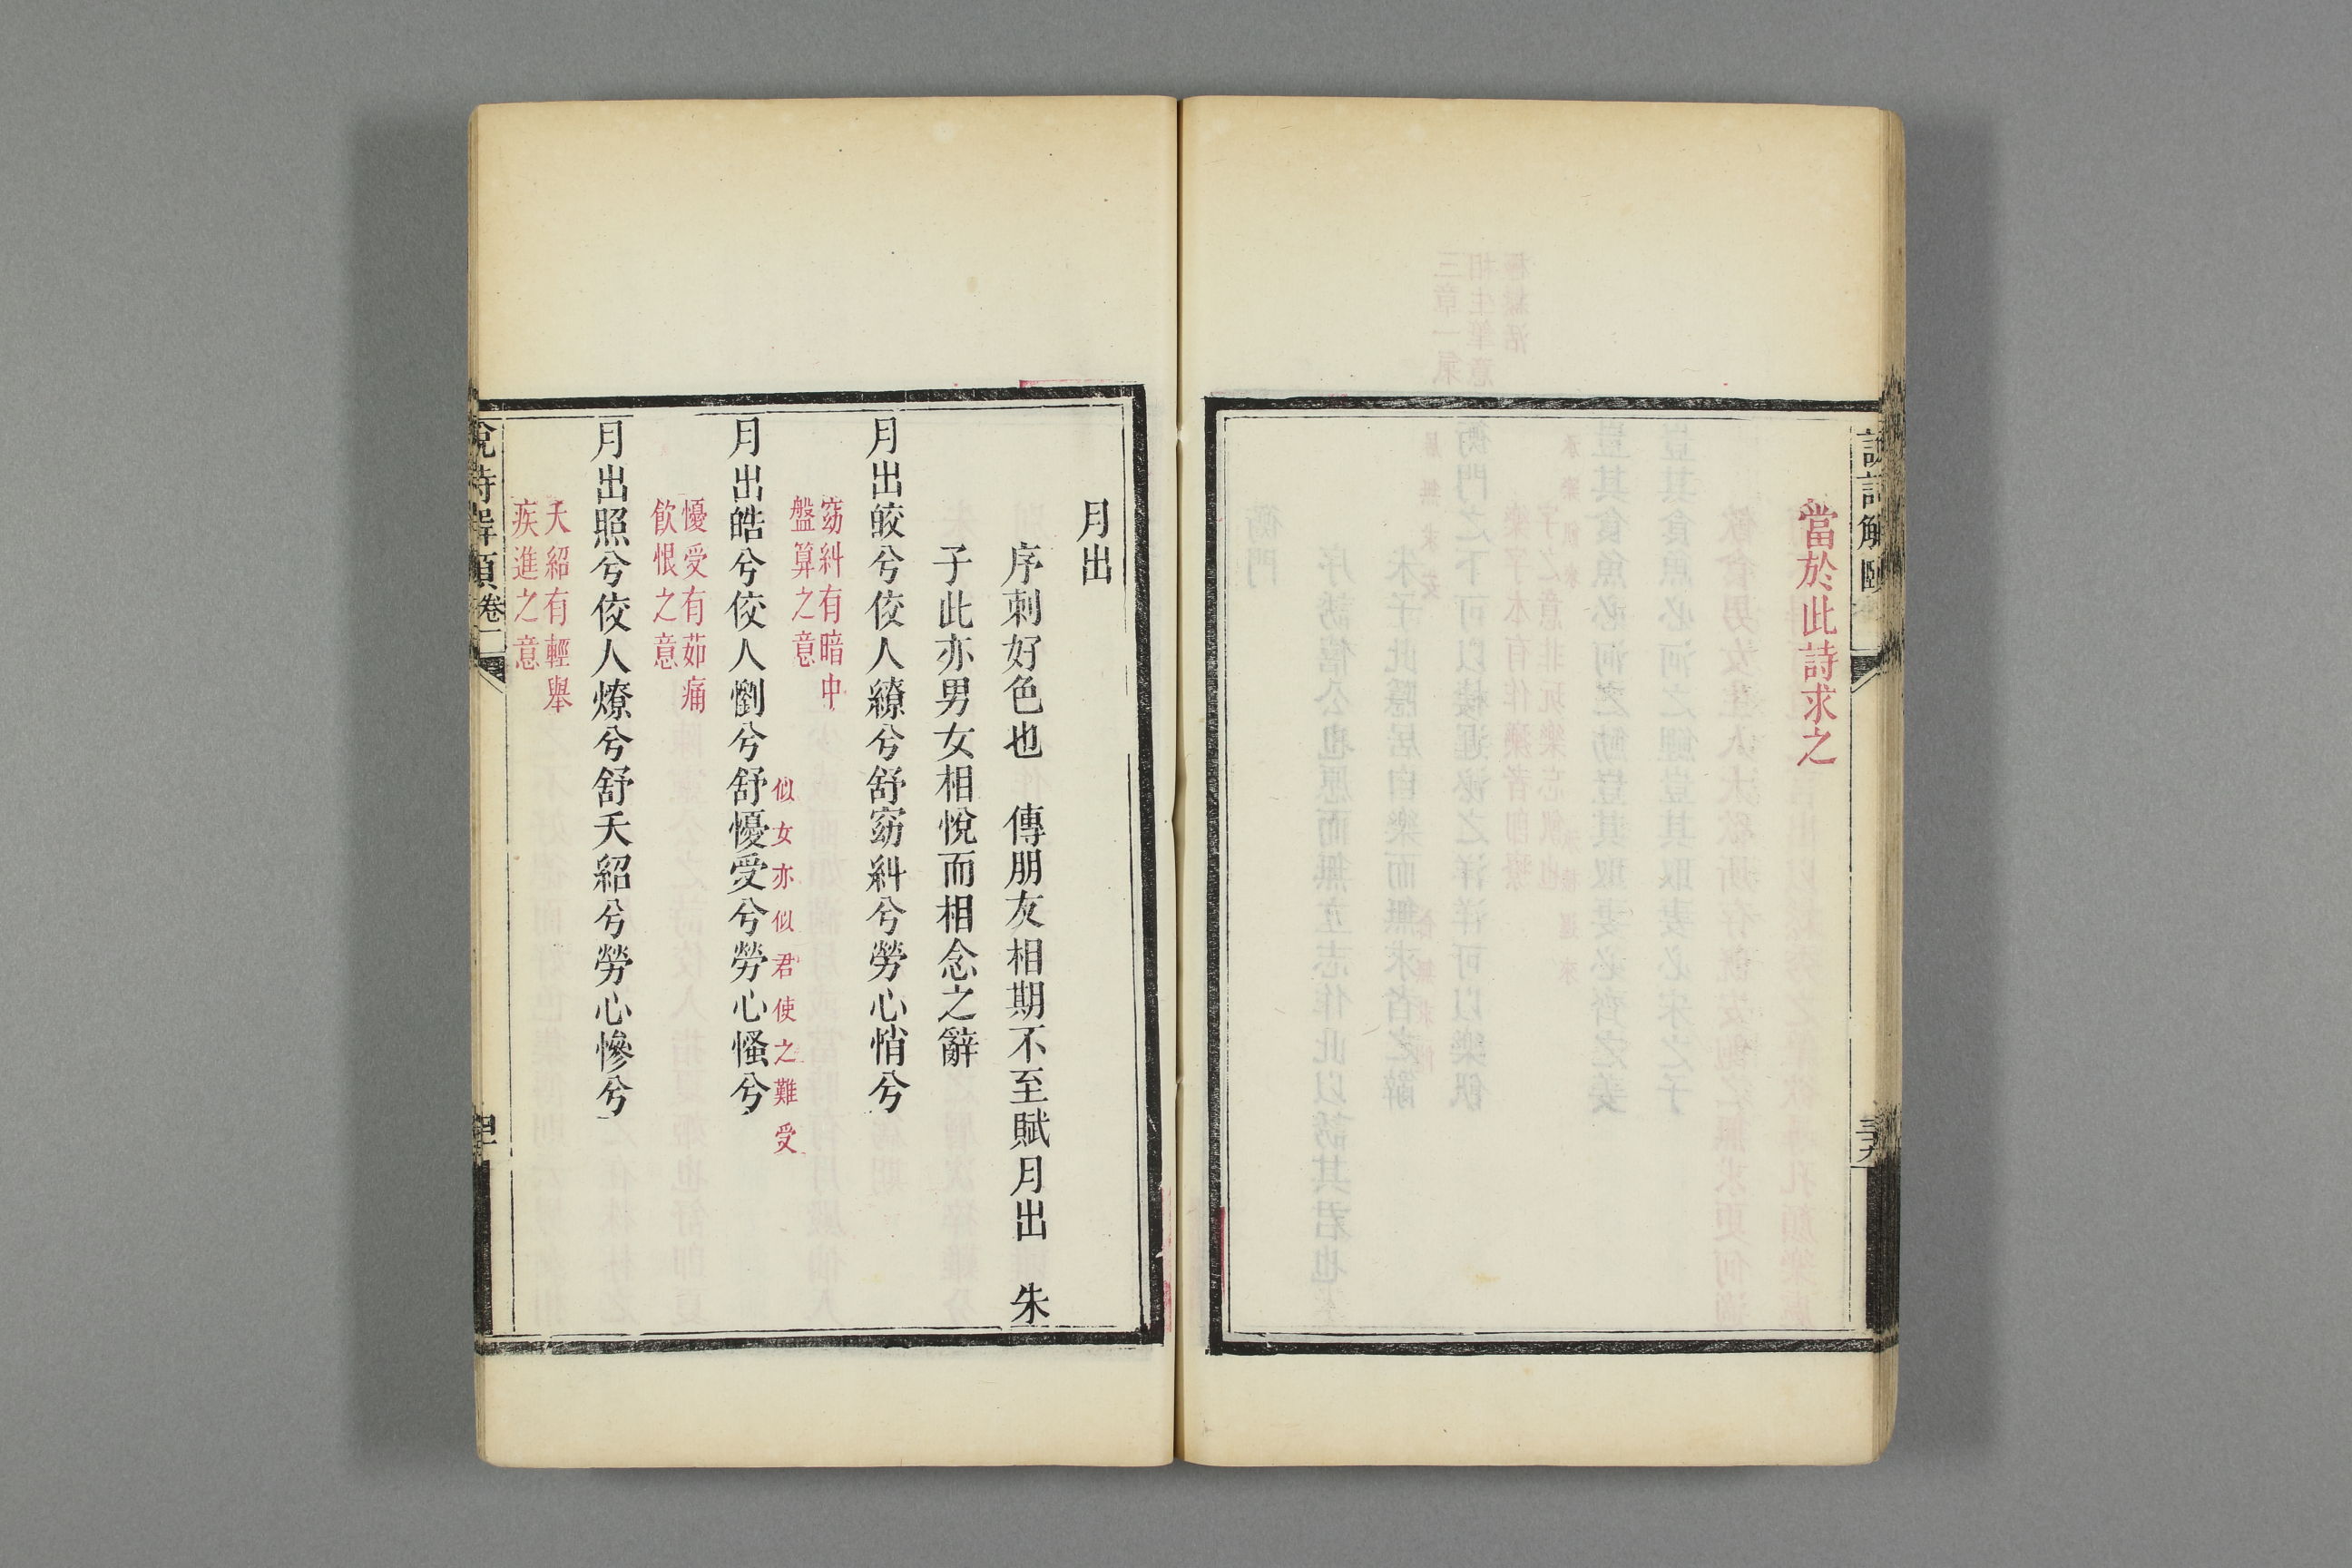 當於此詩求之
月出
序刺好色也　傳朋友相期不至賦月出　朱
子此亦男女相悅而相念之辭
月出皎兮佼人繚兮舒窈糾兮勞心悄兮
窈糾有暗中
盤算之意
似女亦似君使之難受
月出皓兮佼人懰兮舒懮受兮勞心慅兮
懮受有茹痛
飲恨之意
月出照兮佼人燎兮舒夭紹兮勞心慘兮
夭紹有輕舉
疾進之意
說詩解頤卷一